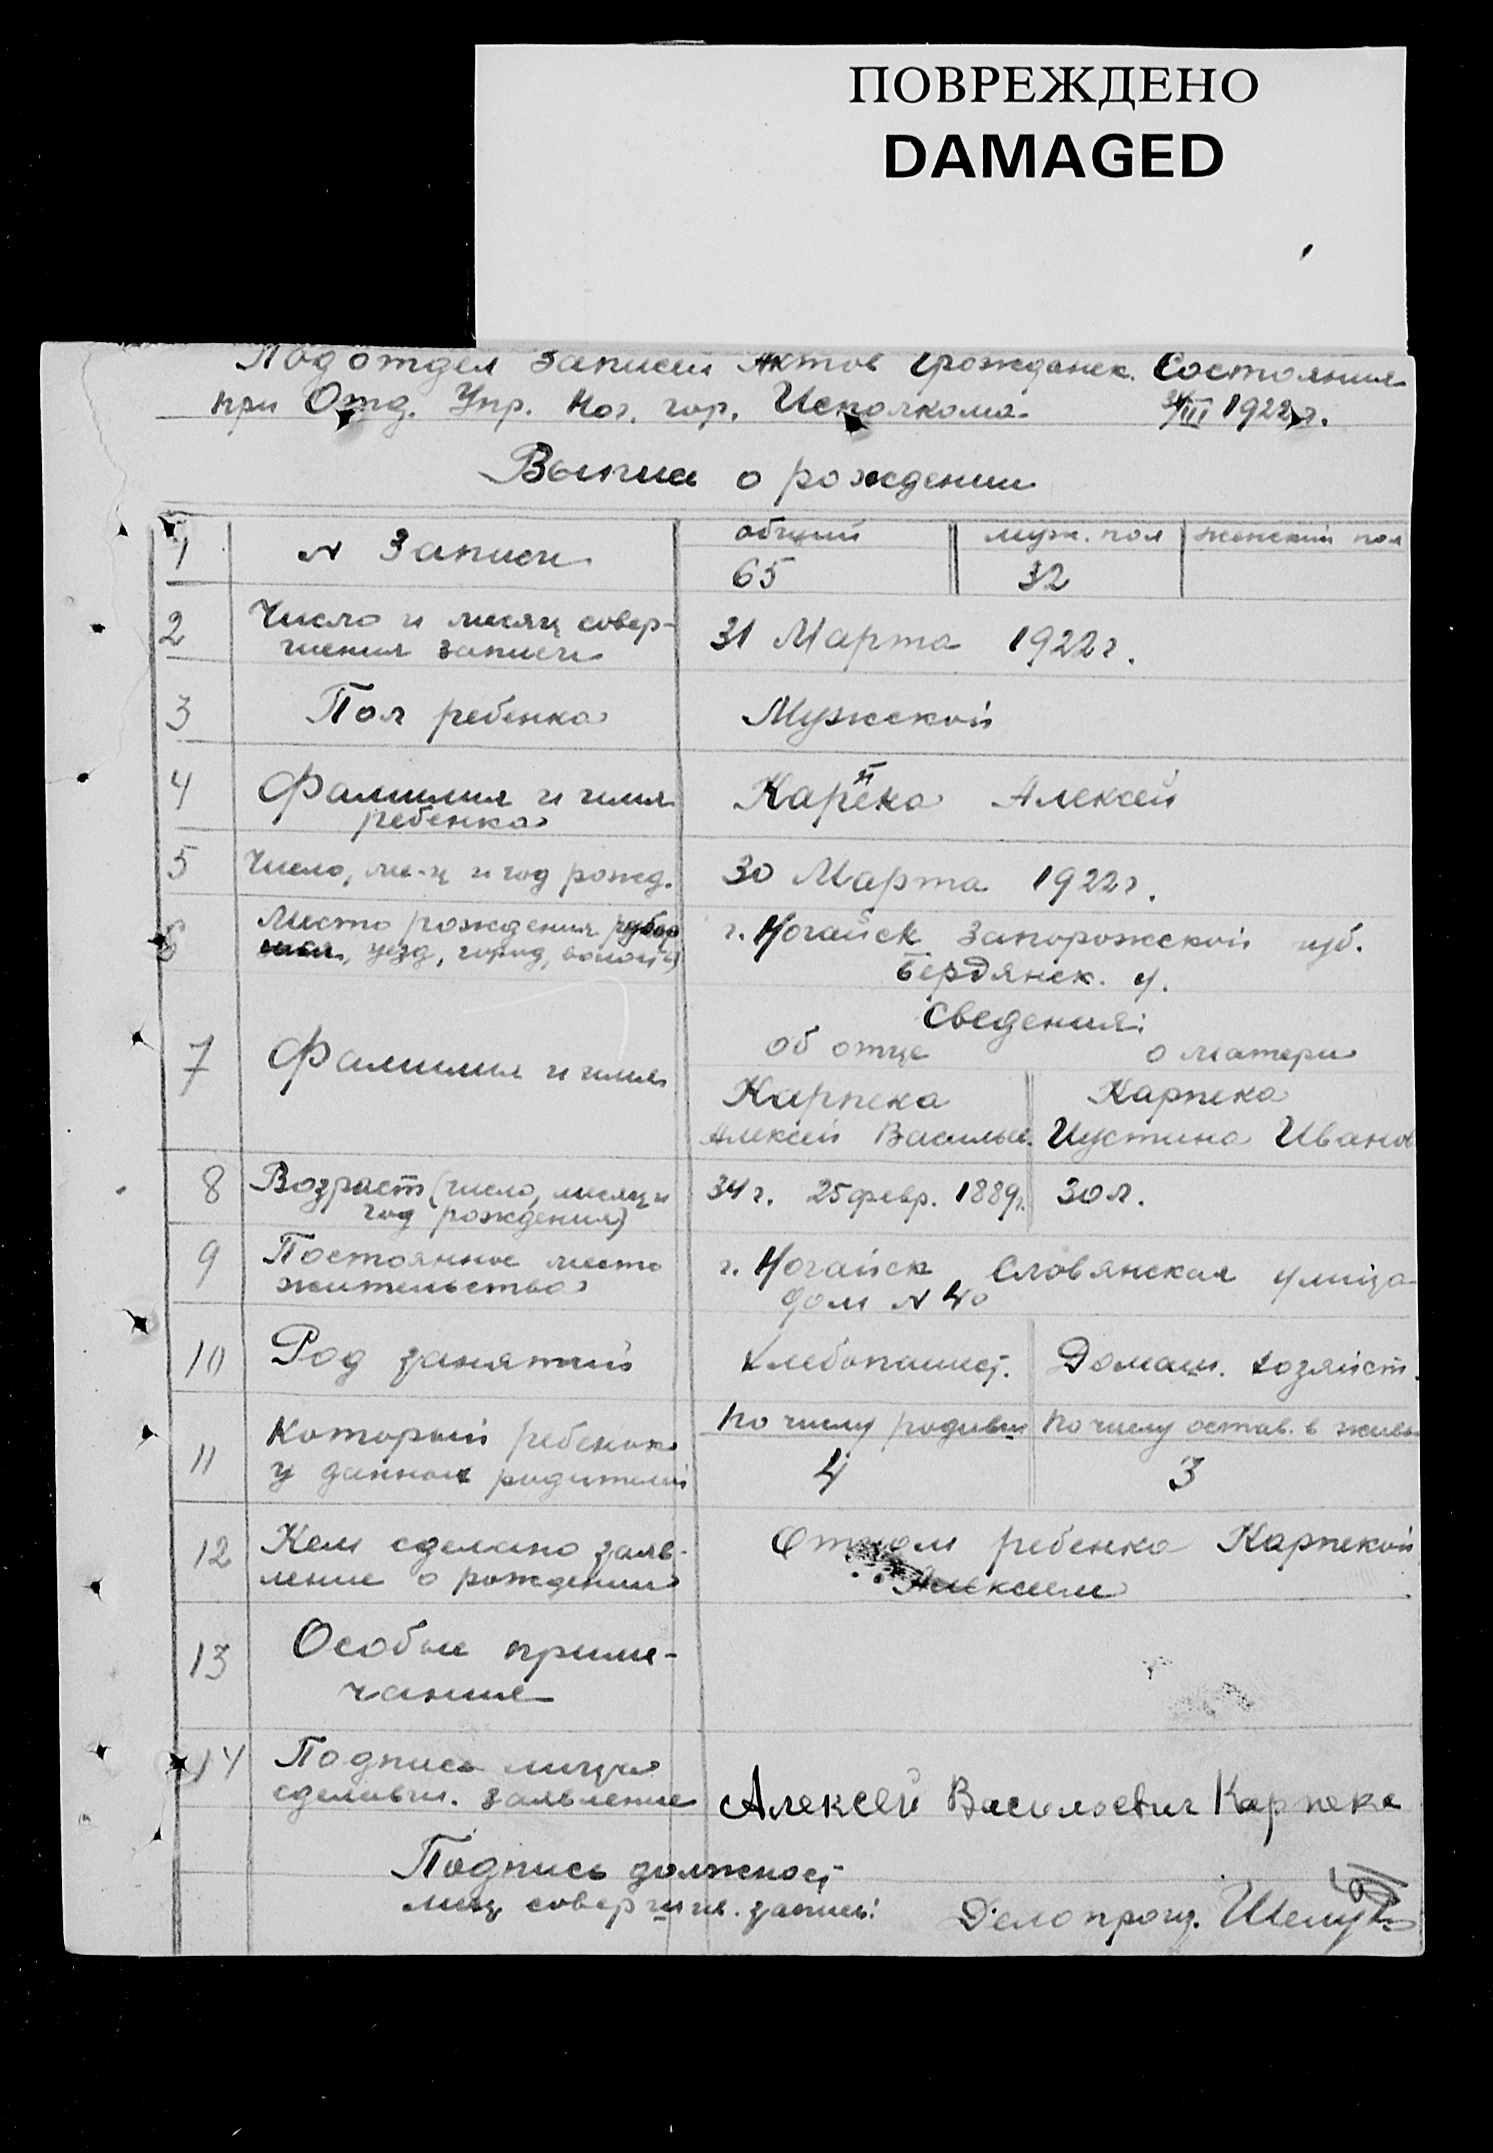 ПОВРЕЖДЕНО
DAMAGED
Подотдел Записей Актов Гражданск. Состояния
при Отд. Упр. Ног. гор. Исполкома. 31/III 1922 г.
Выпись о рождении
1 № Записи общий муж. пол женский пол
65 32
2 Число и месяц совер-
шения записи 31 Марта 1922 г.
3 Пол ребенка Мужской
4 Фамилия и имя
ребенка Карпека Алексей
5 Число, ме-ц и год рожд. 30 Марта 1922 г.
6 Место рождения
уезд, город, волость) г. Ногайск Запорожской губ.
Бердянск. у.
Сведения:
об отце о матери
7 Фамилия и имя
Карпека Карпека
Алексей Васильев. Иустина Иванов
8 Возраст (число, месяц и
год рождения) 34 г. 25 февр. 1889 г. 30 л.
9 Постоянное место
жительство г. Ногайск Словянская улица
дом № 40
10 Род занятий Хлебопашец. Домаш. хозяйст.
По числу родивш По числу остав. в живы
11 Который ребенок
у данных родителей 4 3
12 Кем сделано заяв-
ление о рождении Отцом ребенка Карпекой
Алексеем
13 Особые приме-
чания
14 Подпись лица
сделавш. заявление Алексей Васильевич Карпека
Подпись должност
лиц соверши. запись: Делопроиз.